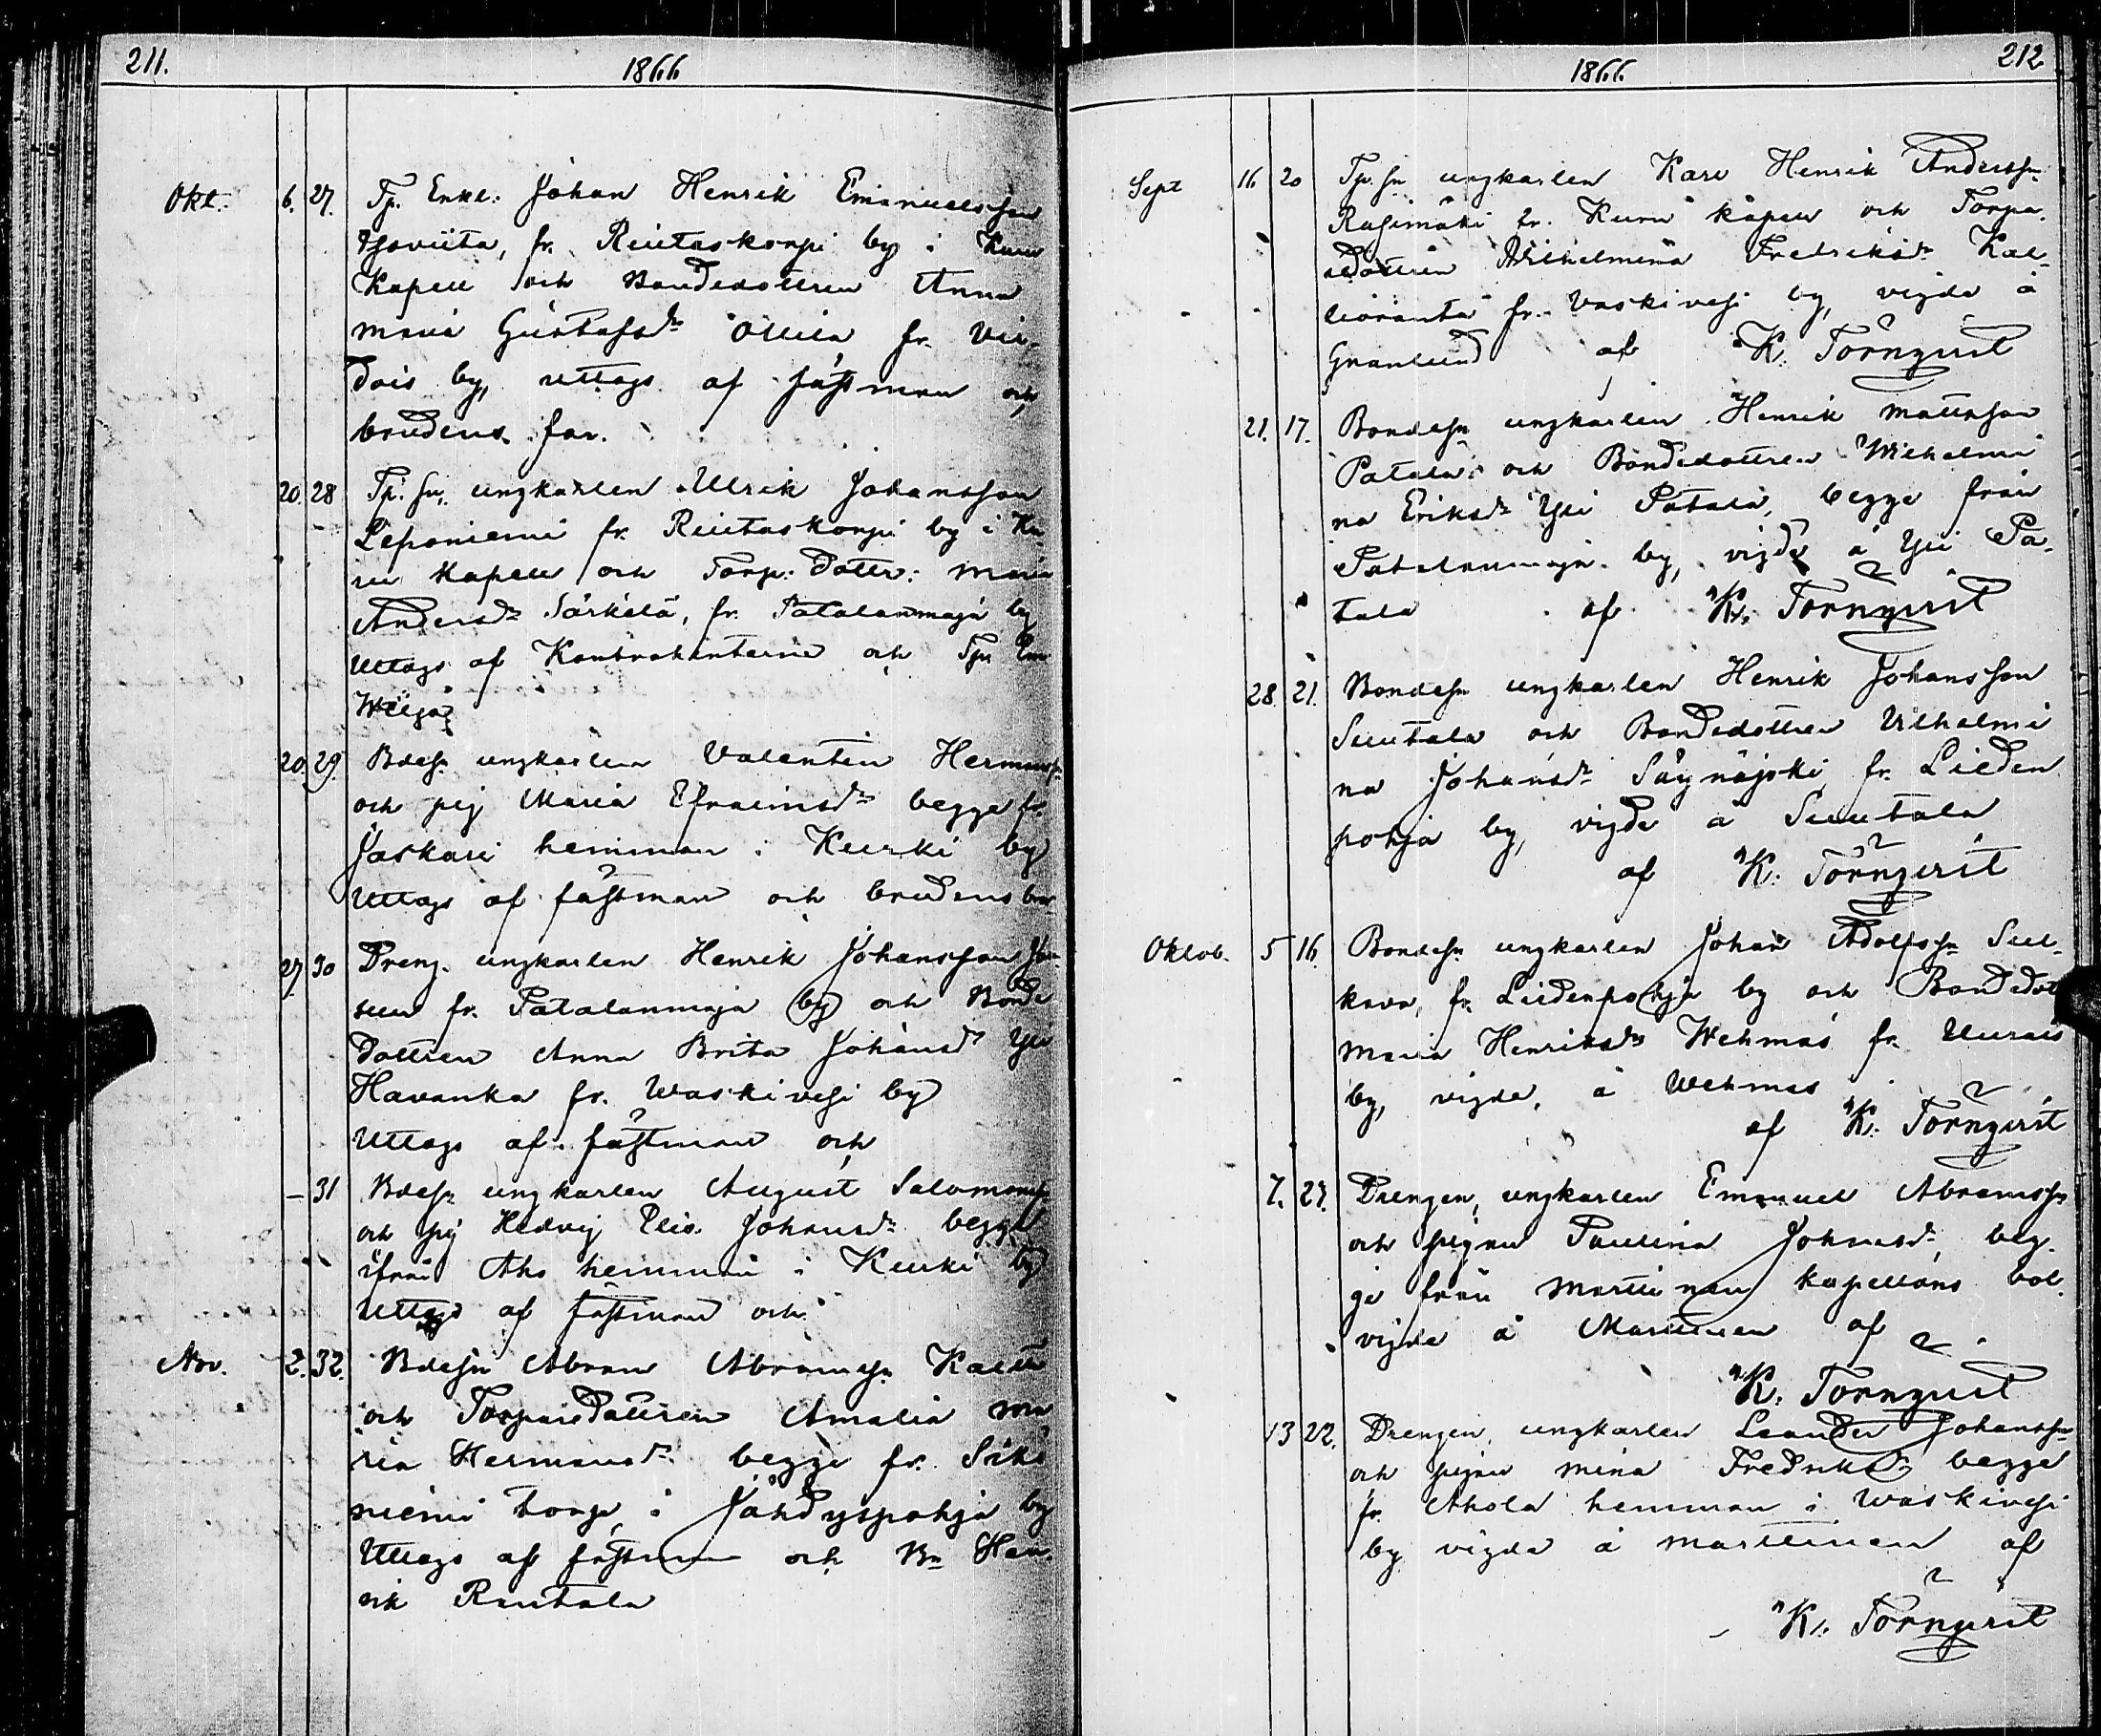 211.
1866
Okt. 6. 27. Tp. Enkl. Johan Henrik Emanuelsson
fr. Reutaskorpi by i Kuru
Kapell och Bondedottren Anna
Maria Gustafsdr Ollila fr. Vir-
dois by, uttags af fästman och
brudens far.
20. 28 Tp. sn. ungkarlen Ulrik Johansson
Leponiemi fr. Reutaskorpi by i Ku
ru Kapell och Torp. Dottr. Maria
Andersdr Särkelä, fr. Patalanmaja by
Uttags af Kontrahenterne och Tpr
20. 29 Bdesn ungkarlen Valentin Hermanss
och pig Maria Efraimsdr begge fr.
Jaskari hemman i Kurki by
Uttags af fästman och brudens bror
27. 30 Dreng. ungkarlen Henrik Johansson
fr. Patalanmaja by och Bonde
Dottren Anna Brita Johansdr Yli
Havanka fr. Waskivesi by
Uttags af fästman och
— 31 Bdesn ungkarlen August Salomonss
och pig Hedvig Elis. Johansdr begge
ifrån Aho hemman i Kurki by
Uttags af fästman och
Nov. 2. 32. Bdesn Abram Abramsn
och Torpare Dottren Amalia Ma
ria Hermansdr begge fr.
niemi torp i Jähdyspohja by
Uttags af fästman och Bn Hen
rik Rautala
212
1866
Sept 16 20 Tp. sn ungkarlen Karl Henrik Anderssn
Rajimäki fr. Kuru kapell och Torpa
redottren Wilhelmina Fredriksdr Kal-
lioranta fr. Vaskivesi by, vigda å
Granlund af K. Törnqvist
21. 17. Bondesn ungkarlen Henrik Mattsson
Patala och Bondedottren Wilhelmi
na Eriksdr Yli Patala, begge från
Patalanmaja by, vigda å Yli Pa-
tala af K. Törnqvist
28. 21. Bondesn ungkarlen Henrik Johansson
Suutala och Bondedottren Vilhelmi
na Johansdr Säynäjoki fr. Lieden
pohja by, vigda å Suutala
af K. Törnqvist
Oktob. 5 16. Bondesn ungkarlen Johan Adolfssn Sul-
kava, fr. Liedenpohja by och Bondedot
Maria Henriksdr Wehmas fr. Uurais
by, vigda, å Wehmas
af K. Törnqvist
7. 27. Drengen, ungkarlen Emanuel Abramssn
och pigan Paulina Johansdr, beg-
ge från Marttinen kapellans bol.
vigda å Marttinen af
K. Törnqvist
13 22. Drengen, ungkarlen Leander Johanssn
och pigan Mina Fredriksdr begge
fr. Ahola hemman i Waskivesi
by vigda å Marttinen af
K. Törnqvist